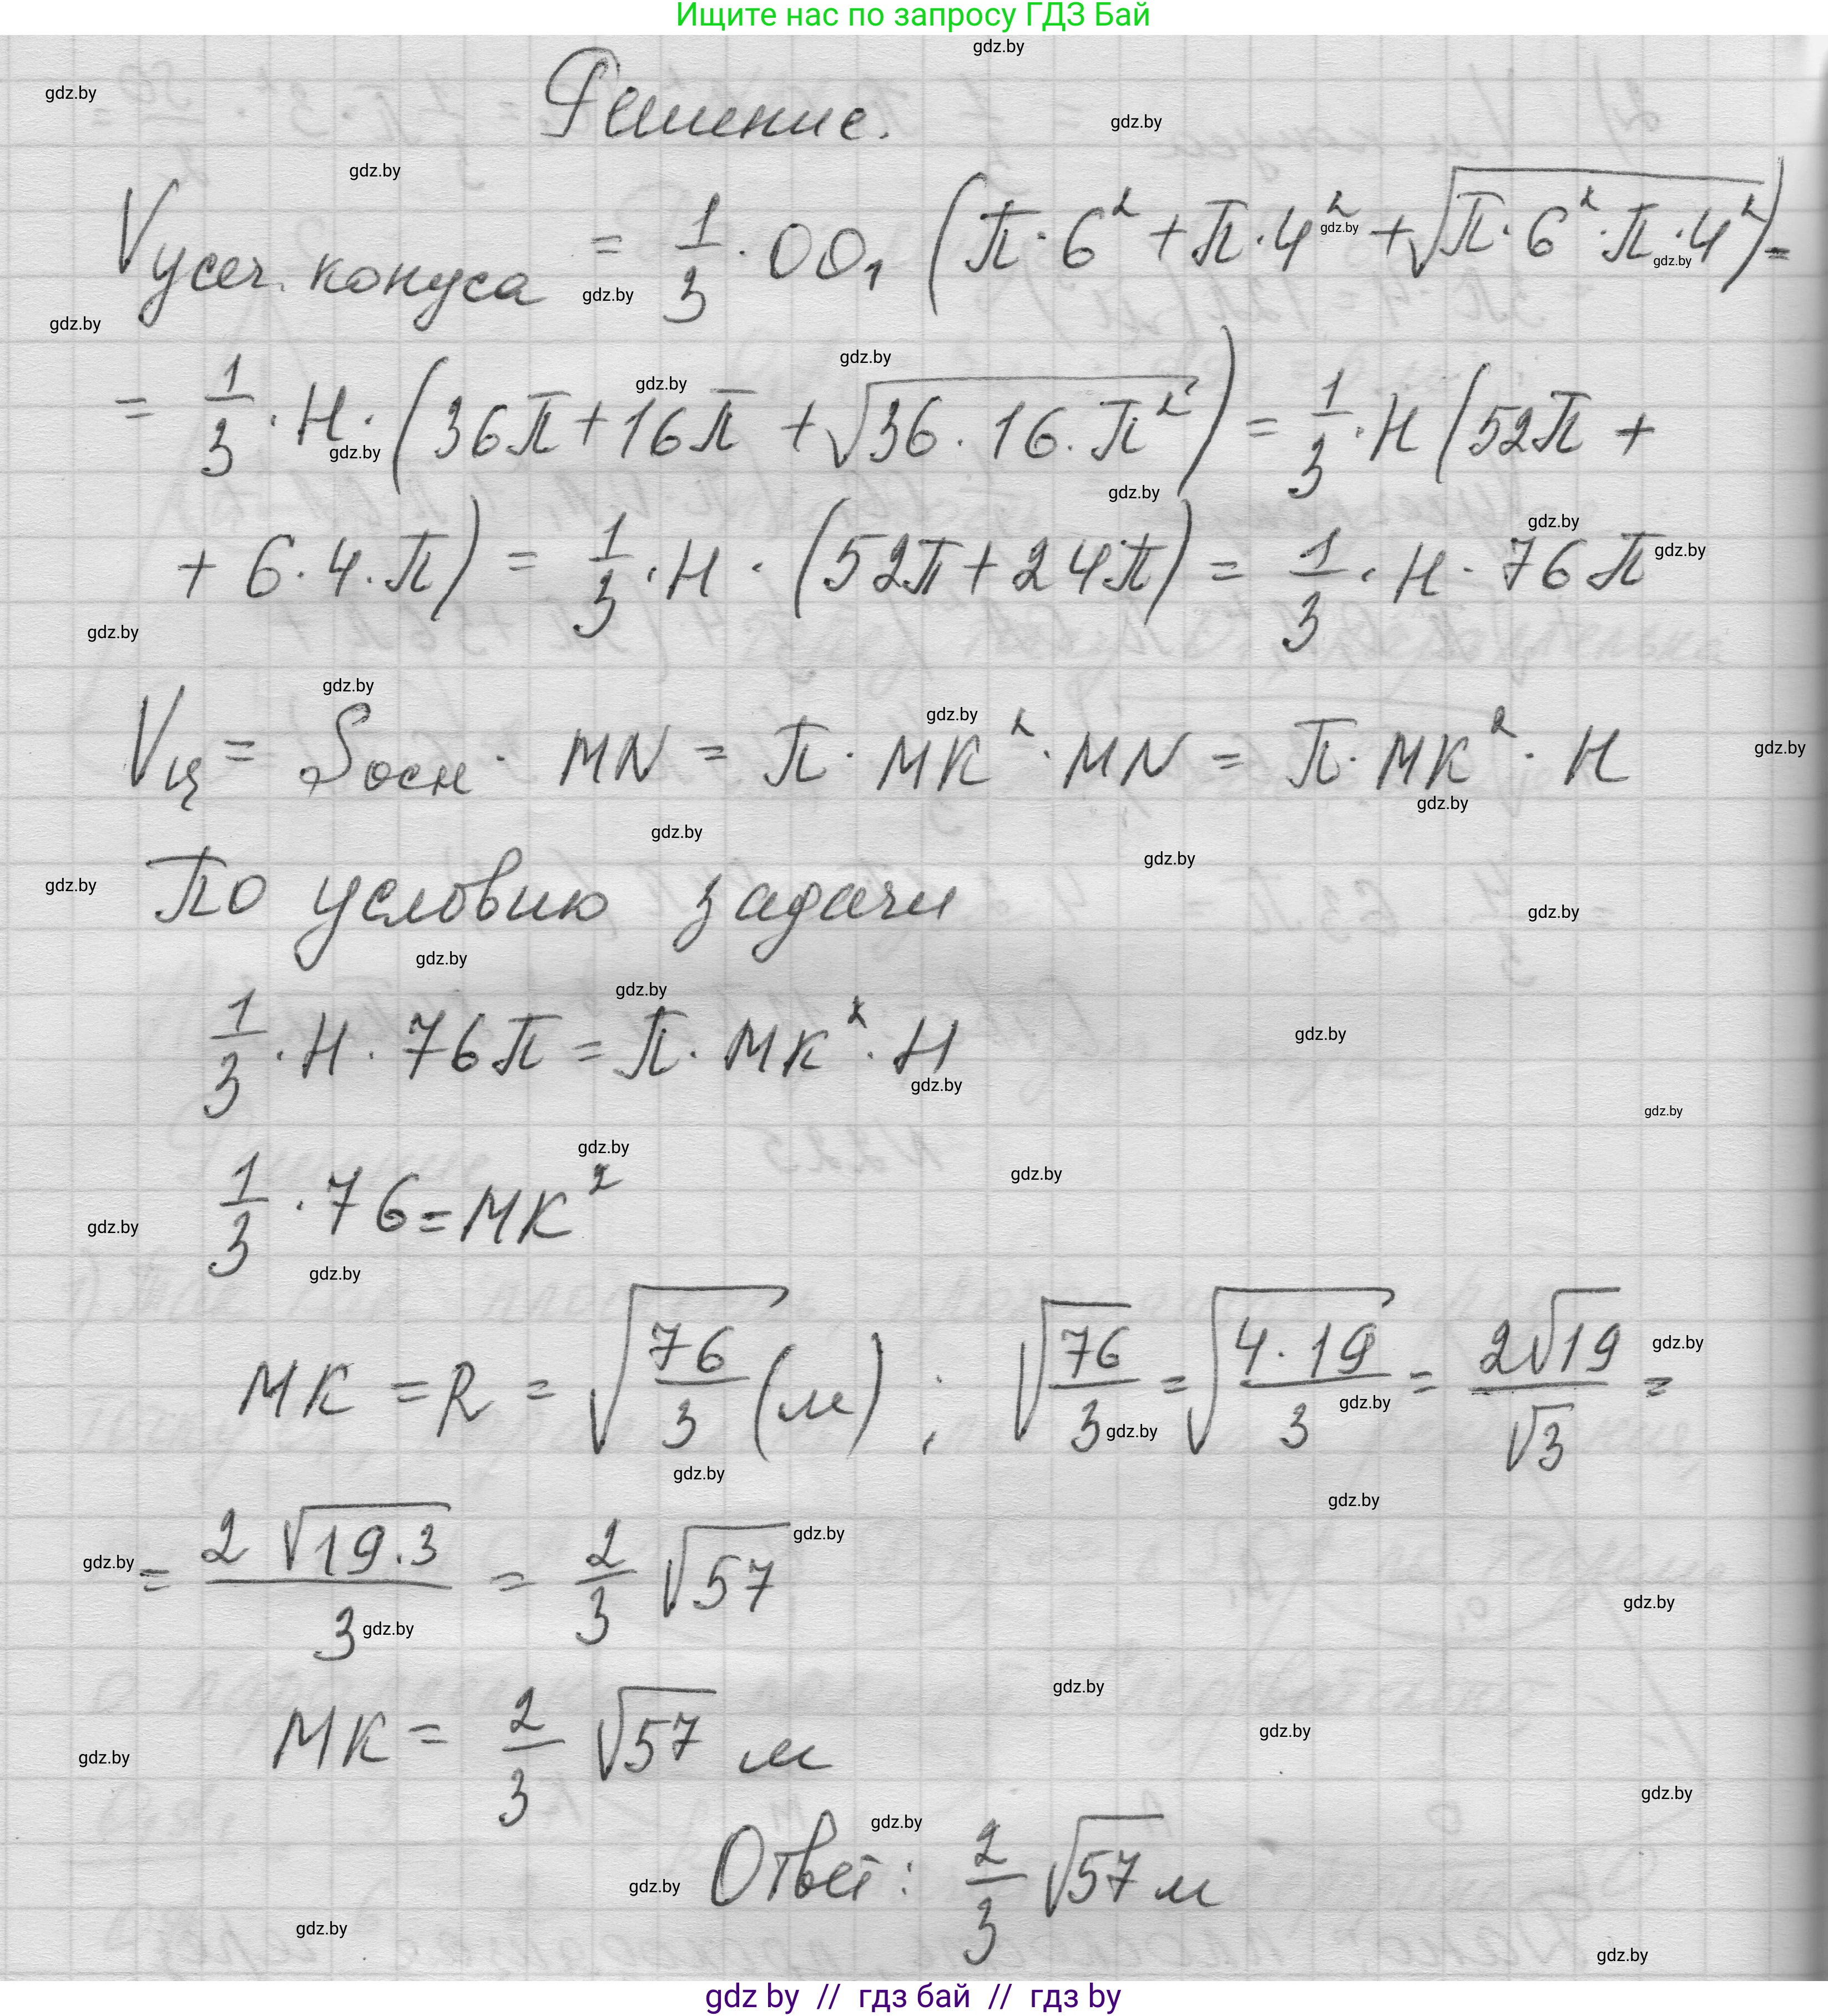 Ищите нас по запросу ГДЗ Бай
Решение.
Vусеч. конуса = 1/3 · OO₁ (π · 6² + π · 4² + √(π · 6² · π · 4²)) =
= 1/3 · H · (36π + 16π + √(36 · 16 · π²)) = 1/3 · H (52π +
+ 6 · 4 · π) = 1/3 · H · (52π + 24π) = 1/3 · H · 76π
Vц = Sосн · MN = π · MK² · MN = π · MK² · H
По условию задачи
1/3 · H · 76π = π · MK² · H
1/3 · 76 = MK²
MK = R = √(76/3) (м) ; √(76/3) = √(4 · 19/3) = 2√19/√3 =
= 2√(19 · 3)/3 = 2/3 √57
MK = 2/3 √57 м
Ответ: 2/3 √57 м
gdz by // гдз бай // гдз by